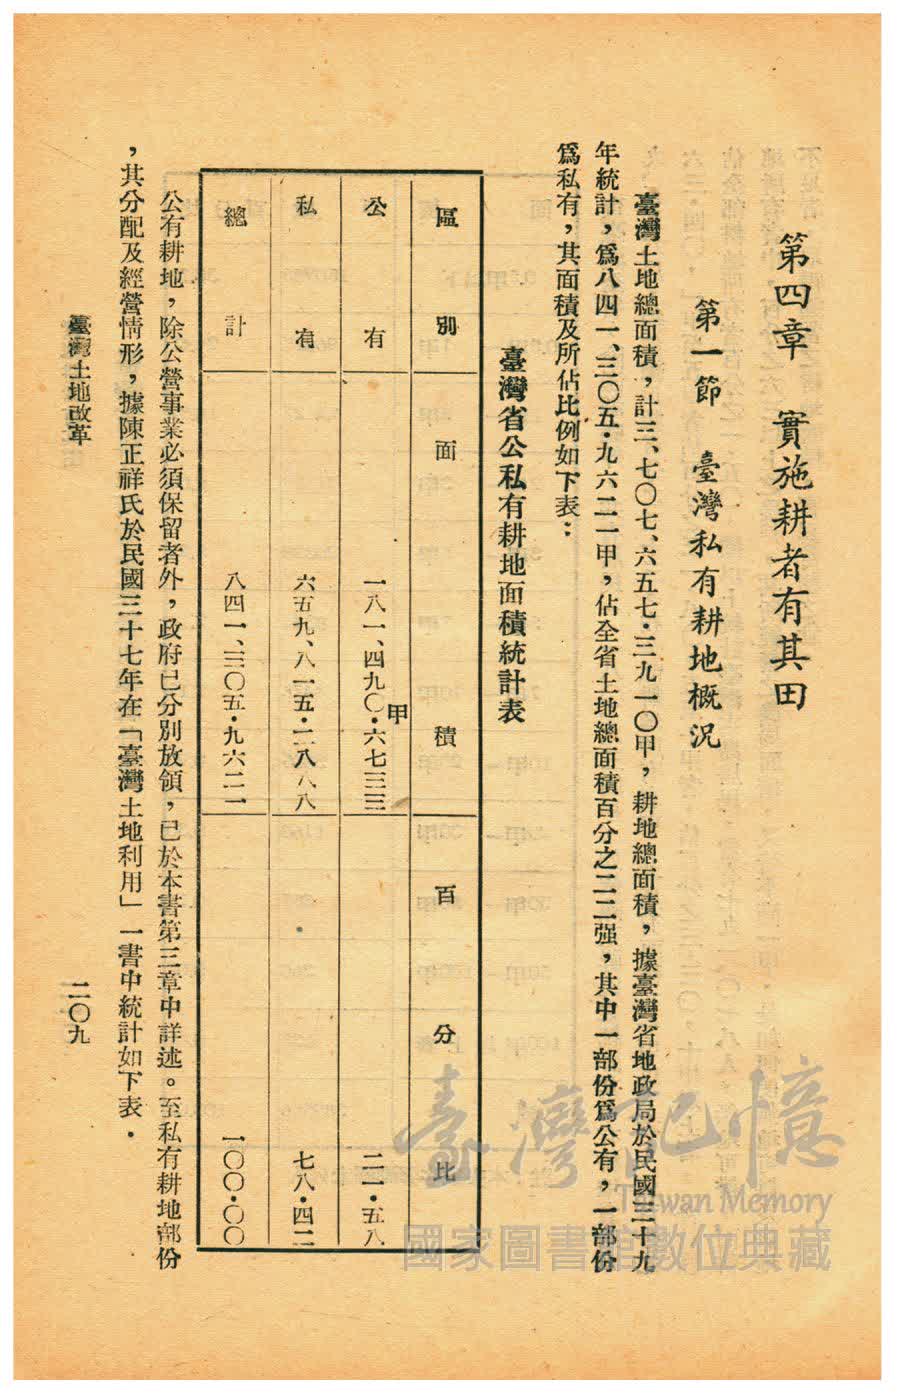 第四章　實施耕者有其田
第一節　臺灣私有耕地概況
臺灣土地總面積，計三、七〇七、六五七·三九一〇甲，耕地總面積，據臺灣省地政局於民國三十九
年統計，爲八四一、三〇五·九六二一甲，佔全省土地總面積百分之二二强，其中一部份爲公有，一部份
爲私有，其面積及所佔比例如下表：
臺灣省公私有耕地面積統計表
區別　面積　百分比
甲
公有　一八一、四九〇·六七三三　二一·五八
私有　六五九、八一五·二八八八　七八·四二
總計　八四一、三〇五·九六二一　一〇〇·〇〇
公有耕地，除公營事業必須保留者外，政府已分別放領，已於本書第三章中詳述。至私有耕地部份
，其分配及經營情形，據陳正祥氏於民國三十七年在「臺灣土地利用」一書中統計如下表．
臺灣土地改革　二〇九
臺灣記憶
Taiwan Memory
國家圖書館數位典藏